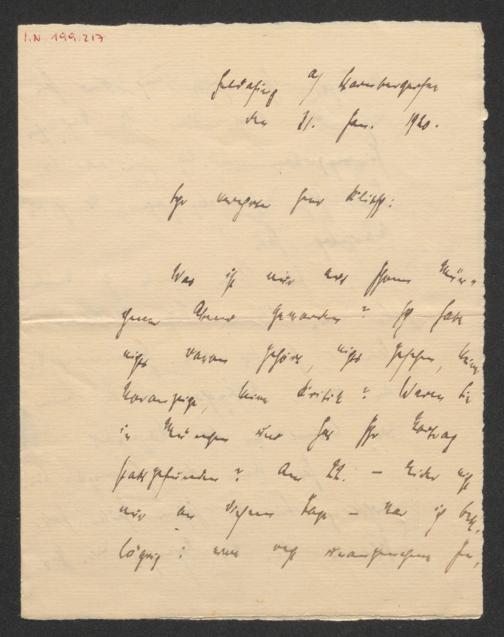 I.N. 199.217
Feldafing a/ Starnbergersee
den 31. Jan. 1920.
Sehr verehrter Herr
Was ist nun aus Ihrem Mün-
chener Abend geworden? Ich habe
nichts davon gehört, nichts gesehen, keine
Voranzeige, keine Kritik? Waren Sie
in München und hat Ihr Vortrag
stattgefunden? Am 22. – leider
nur an diesem Tage – war ich